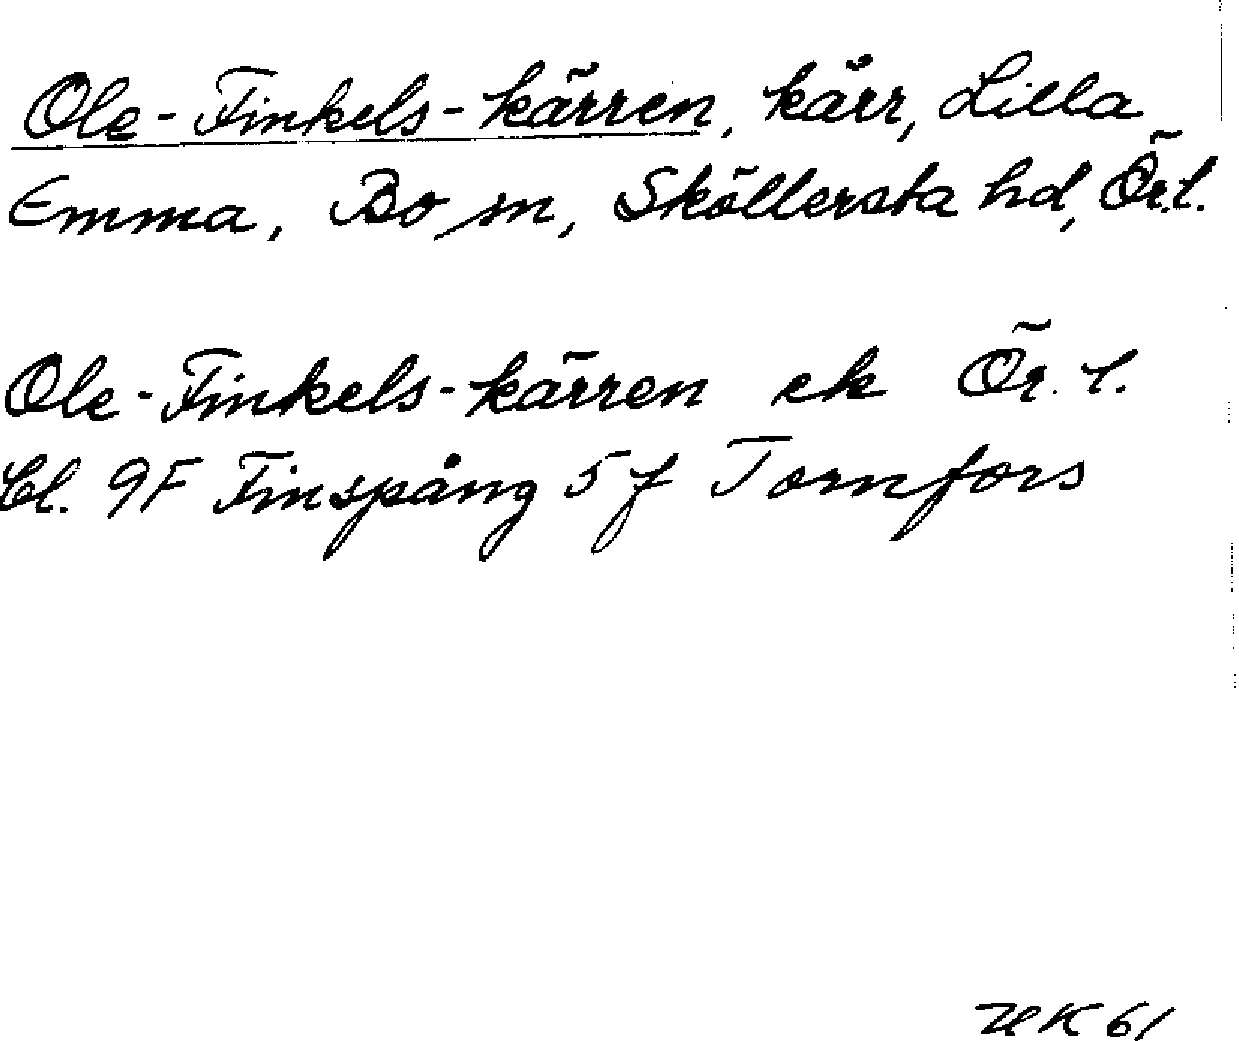 Ole-Finkels-kärren, kärr, Lilla
Emma, Bo sn, Sköllersta hd, Ör.l.
Ole-Finkels-kärren ek Ör. l.
bl. 9F Finspång 5 f Tornfors
UK 61